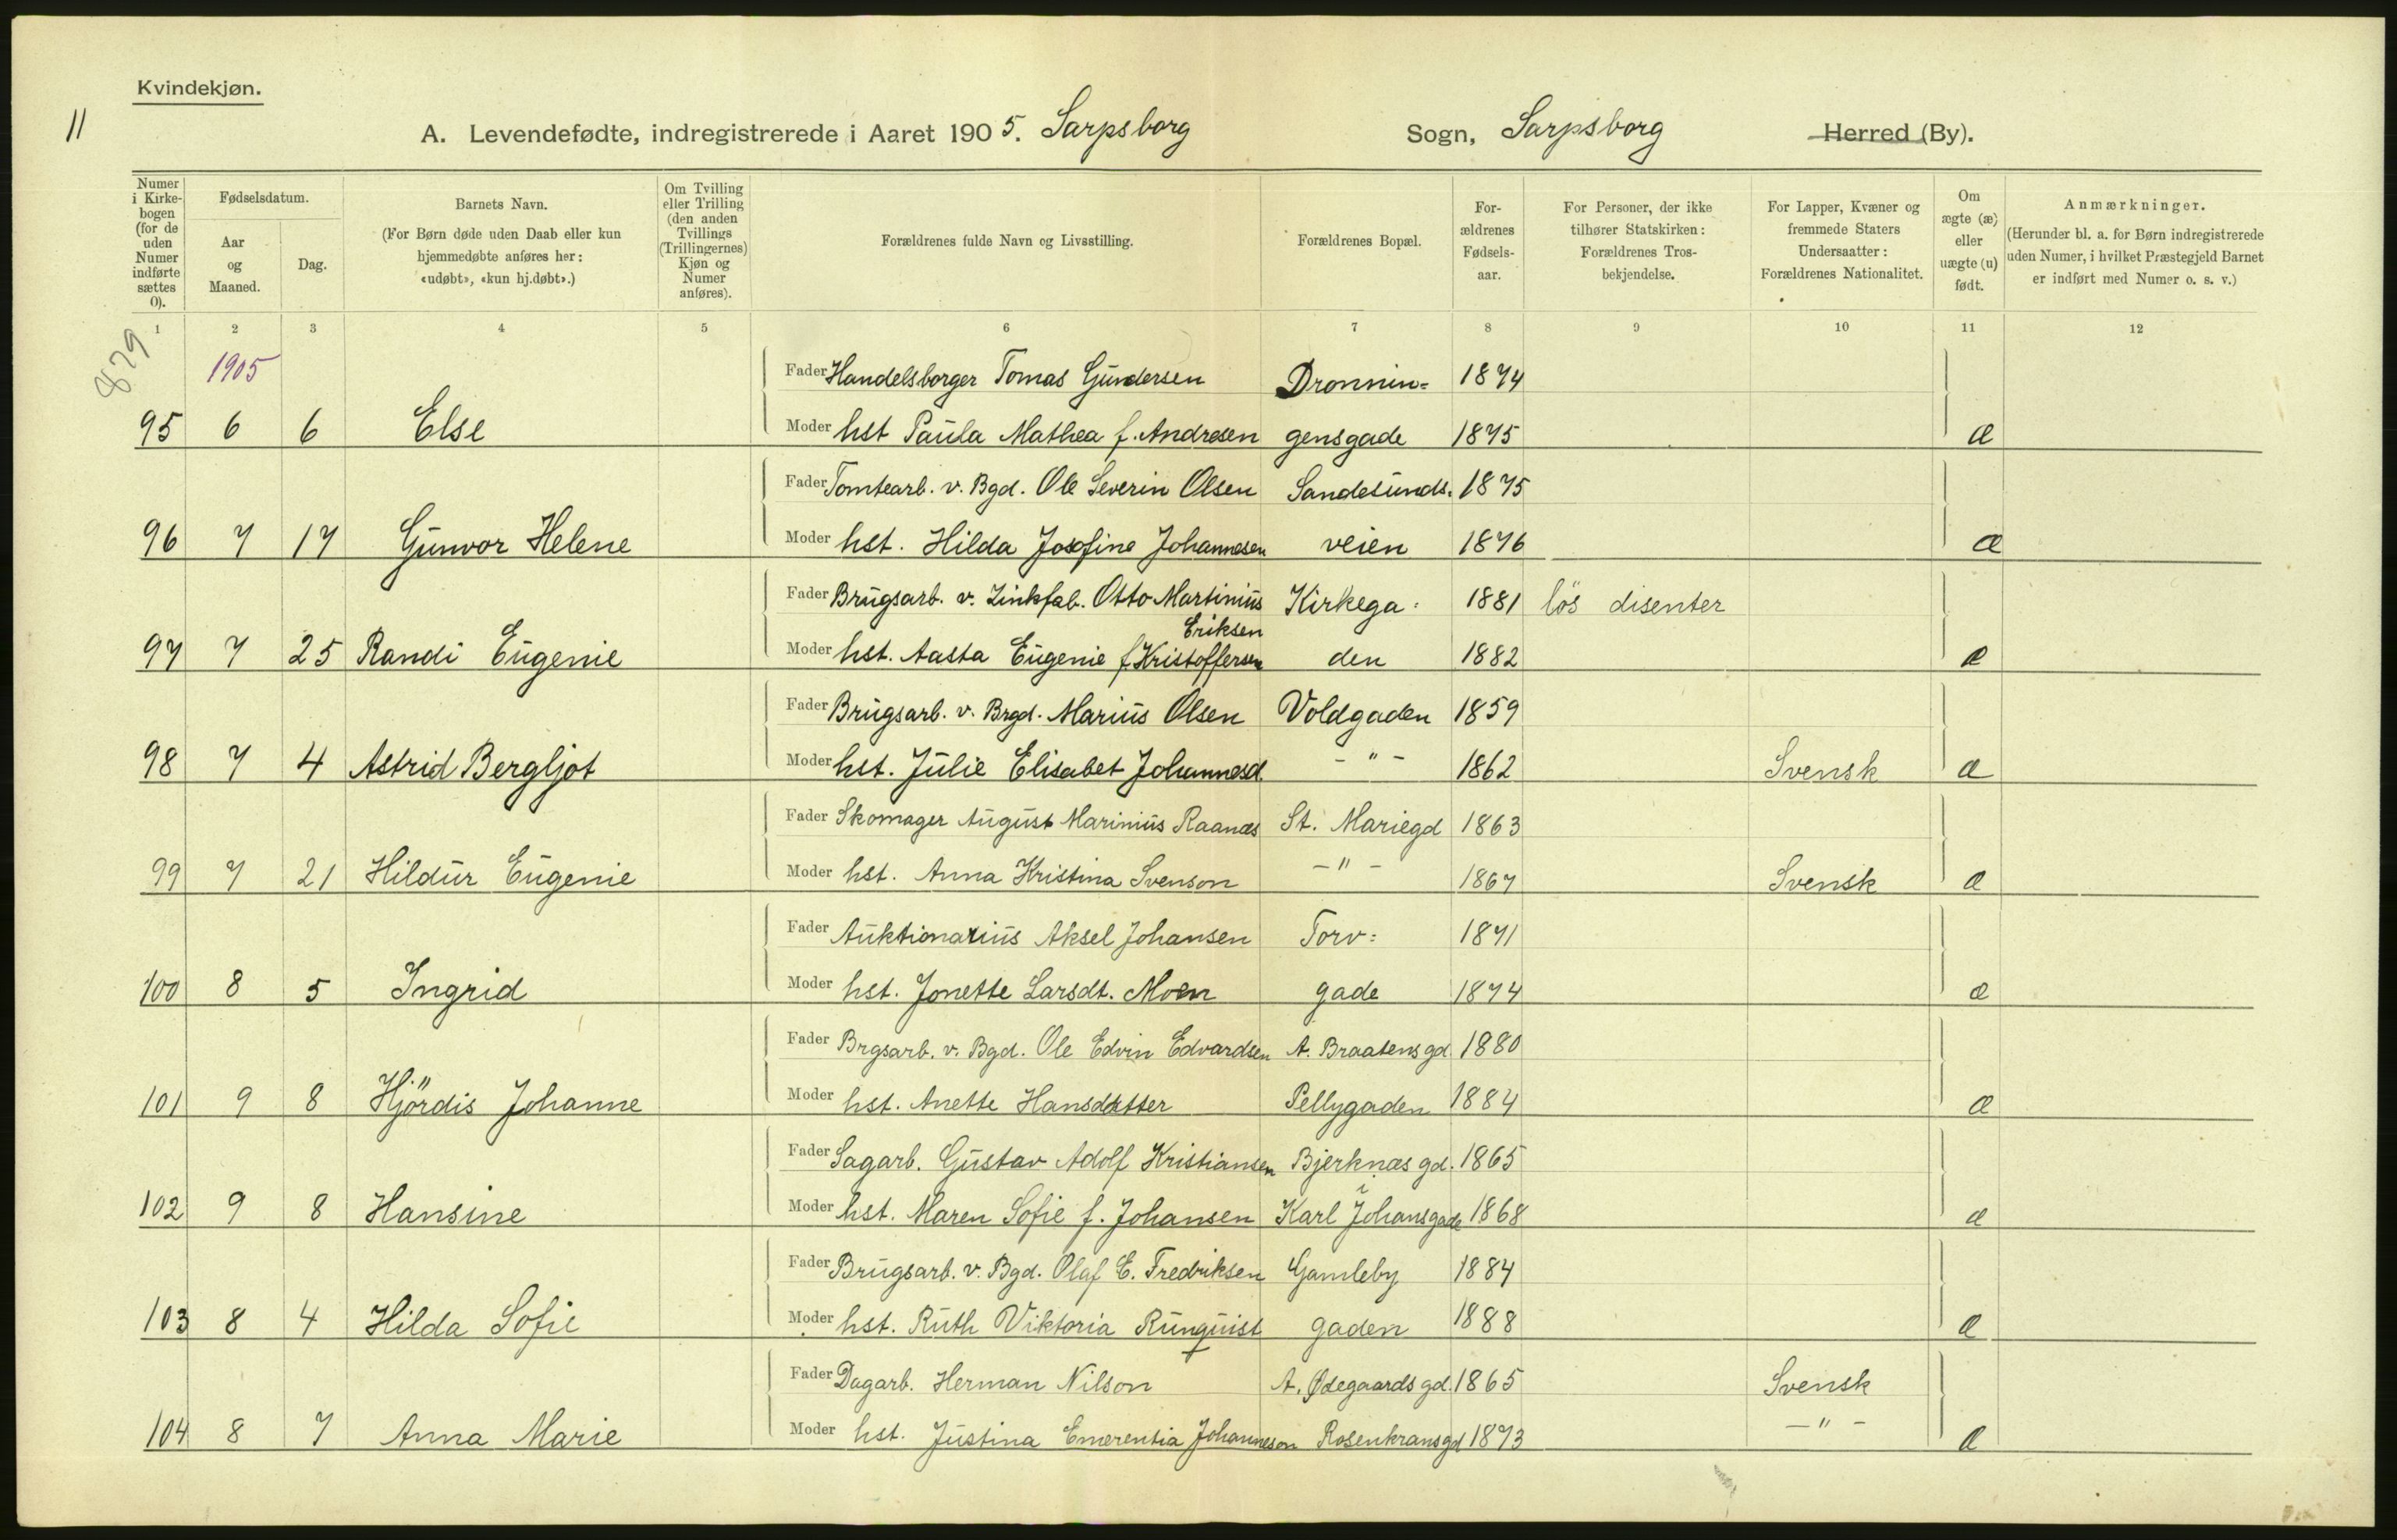 Kvindekjøn.
11
A. Levendefødte, indregistrerede i Aaret 1905. Sarpsborg Sogn, Sarpsborg Herred (By).
Numer i Kirkebogen (for de uden Numer indførte sættes 0).
Fødselsdatum.
Aar og Maaned.
Dag.
Barnets Navn.
(For Børn døde uden Daab eller kun hjemmedøbte anføres her: «udøbt», «kun hj.døbt».)
Om Tvilling eller Trilling (den anden Tvillings (Trillingernes) Kjøn og Numer anføres).
Forældrenes fulde Navn og Livsstilling.
Forældrenes Bopæl.
Forældrenes Fødselsaar.
For Personer, der ikke tilhører Statskirken: Forældrenes Trosbekjendelse.
For Lapper, Kvæner og fremmede Staters Undersaatter: Forældrenes Nationalitet.
Om ægte (æ) eller uægte (u) født.
Anmærkninger.
(Herunder bl. a. for Børn indregistrerede uden Numer, i hvilket Præstegjeld Barnet er indført med Numer o. s. v.)
1 2 3 4 5 6 7 8 9 10 11 12
879
1905 Fader Handelsborger Tomas Gundersen Dronnin= 1874
95 6 6 Else Moder hst Paula Mathea f. Andresen gensgade 1875 æ
Fader Tomtearb. v. Bgd. Ole Severin Olsen Sandesunds= 1875
96 7 17 Gunvor Helene Moder hst. Hilda Josefine Johannesen veien 1876 æ
Fader Brugsarb. v. Zinkfab. Otto Martinius Kirkega= 1881 lös disenter
Eriksen
97 7 25 Randi Eugenie Moder hst. Aasta Eugenie f. Kristoffersen den 1882 æ
Fader Brugsarb. v. Brgd. Marius Olsen Voldgaden 1859
98 7 4 Astrid Bergljot Moder hst. Julie Elisabet Johannesd. - " - 1862 Svensk æ
Fader Skomager August Marinius Raanæs St. Mariegd 1863
99 7 21 Hildur Eugenie Moder hst. Anna Kristina Svenson - " - 1867 Svensk æ
Fader Auktionarius Aksel Johansen Torv= 1871
100 8 5 Ingrid Moder hst. Jonette Larsdt. Moen gade 1874 æ
Fader Brgsarb. v. Bgd. Ole Edvin Edvardsen A. Braatens gd. 1880
101 9 8 Hjördis Johanne Moder hst. Anette Hansdatter Pellygaden 1884 æ
Fader Sagarb. Gustav Adolf Kristiansen Bjerknæs gd. 1865
102 9 8 Hansine Moder hst. Maren Sofie f. Johansen Karl Johansgade 1868 æ
Fader Brugsarb. v. Bgd. Olaf E. Fredriksen Gamleby 1884
103 8 4 Hilda Sofie Moder hst. Ruth Viktoria Runquist gaden 1888 æ
Fader Dagarb. Herman Nilson A. Ødegaards gd. 1865 Svensk
104 8 7 Anna Marie Moder hst. Justina Emerentia Johanneson Rosenkransgd 1873 - " - æ